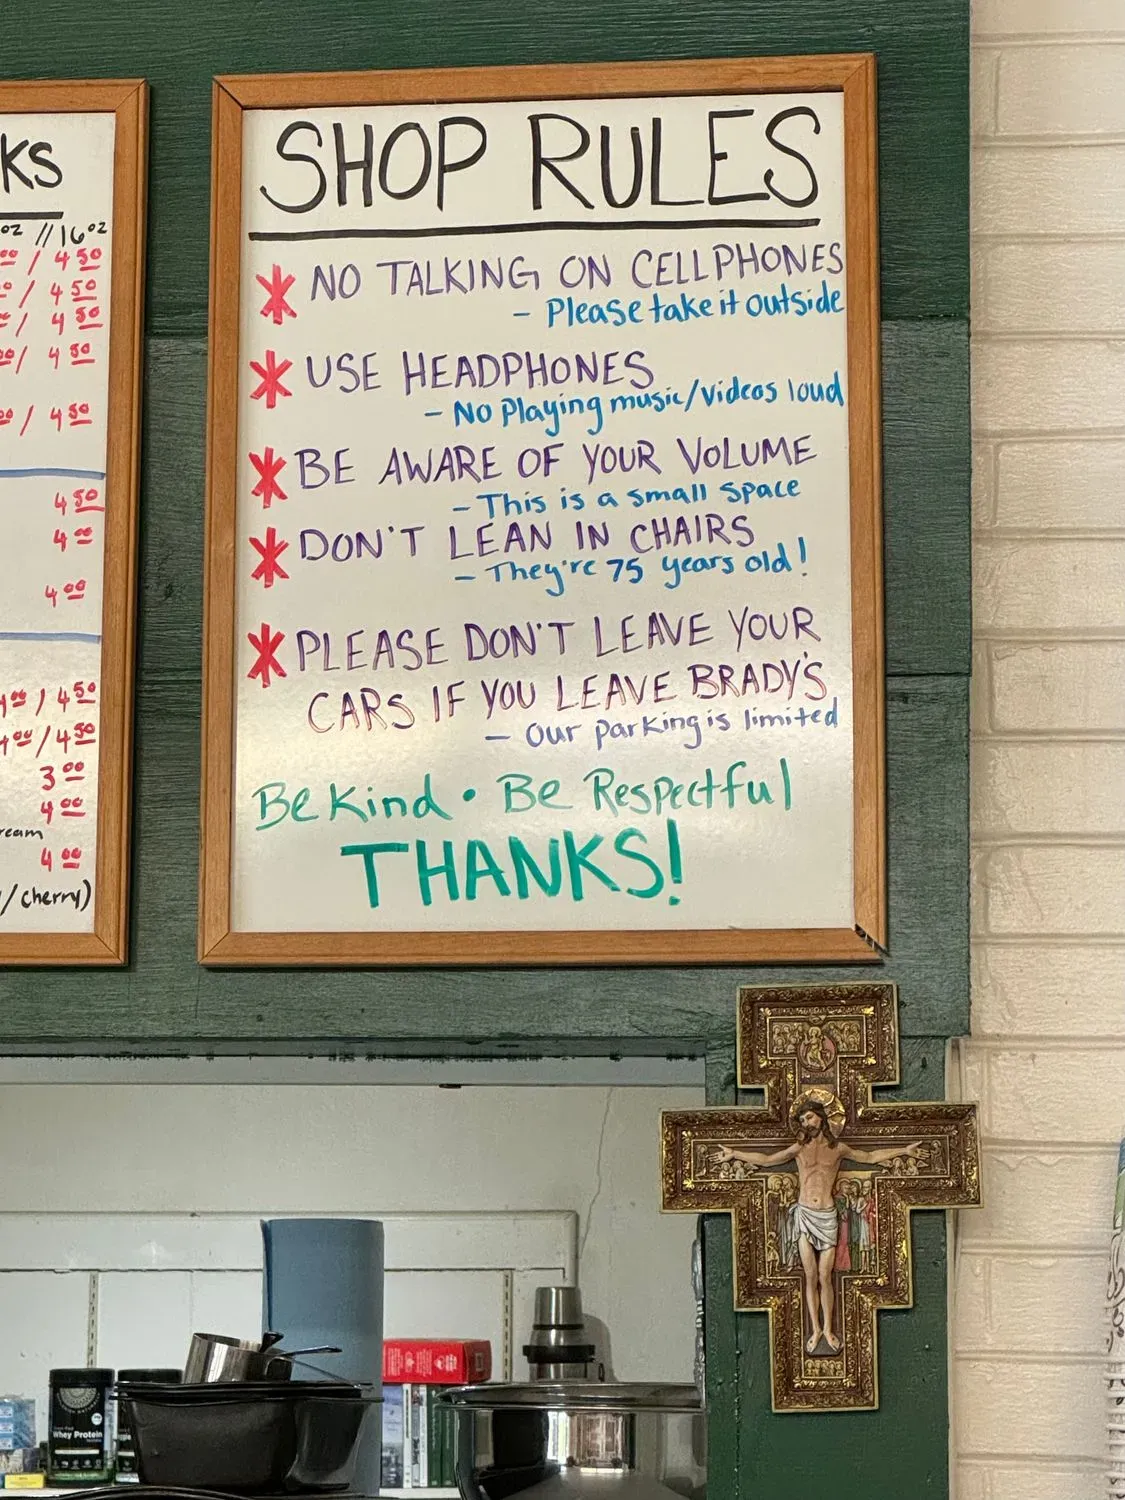 KS
oz // 16oz
/ 4 50
/ 4 50
/ 4 50
/ 4 50
/ 4 50
4 50
4 00
4 00
/ 4 50
/ 4 50
3 00
4 00
4 00
/cherry)
SHOP RULES
* NO TALKING ON CELLPHONES
- Please take it outside
* USE HEADPHONES
- No Playing music/videos loud
* BE AWARE OF YOUR VOLUME
- This is a small space
* DON'T LEAN IN CHAIRS
- They're 75 years old!
* PLEASE DON'T LEAVE YOUR
CARS IF YOU LEAVE BRADY'S
- Our parking is limited
Be Kind • Be Respectful
THANKS!
Whey Protein